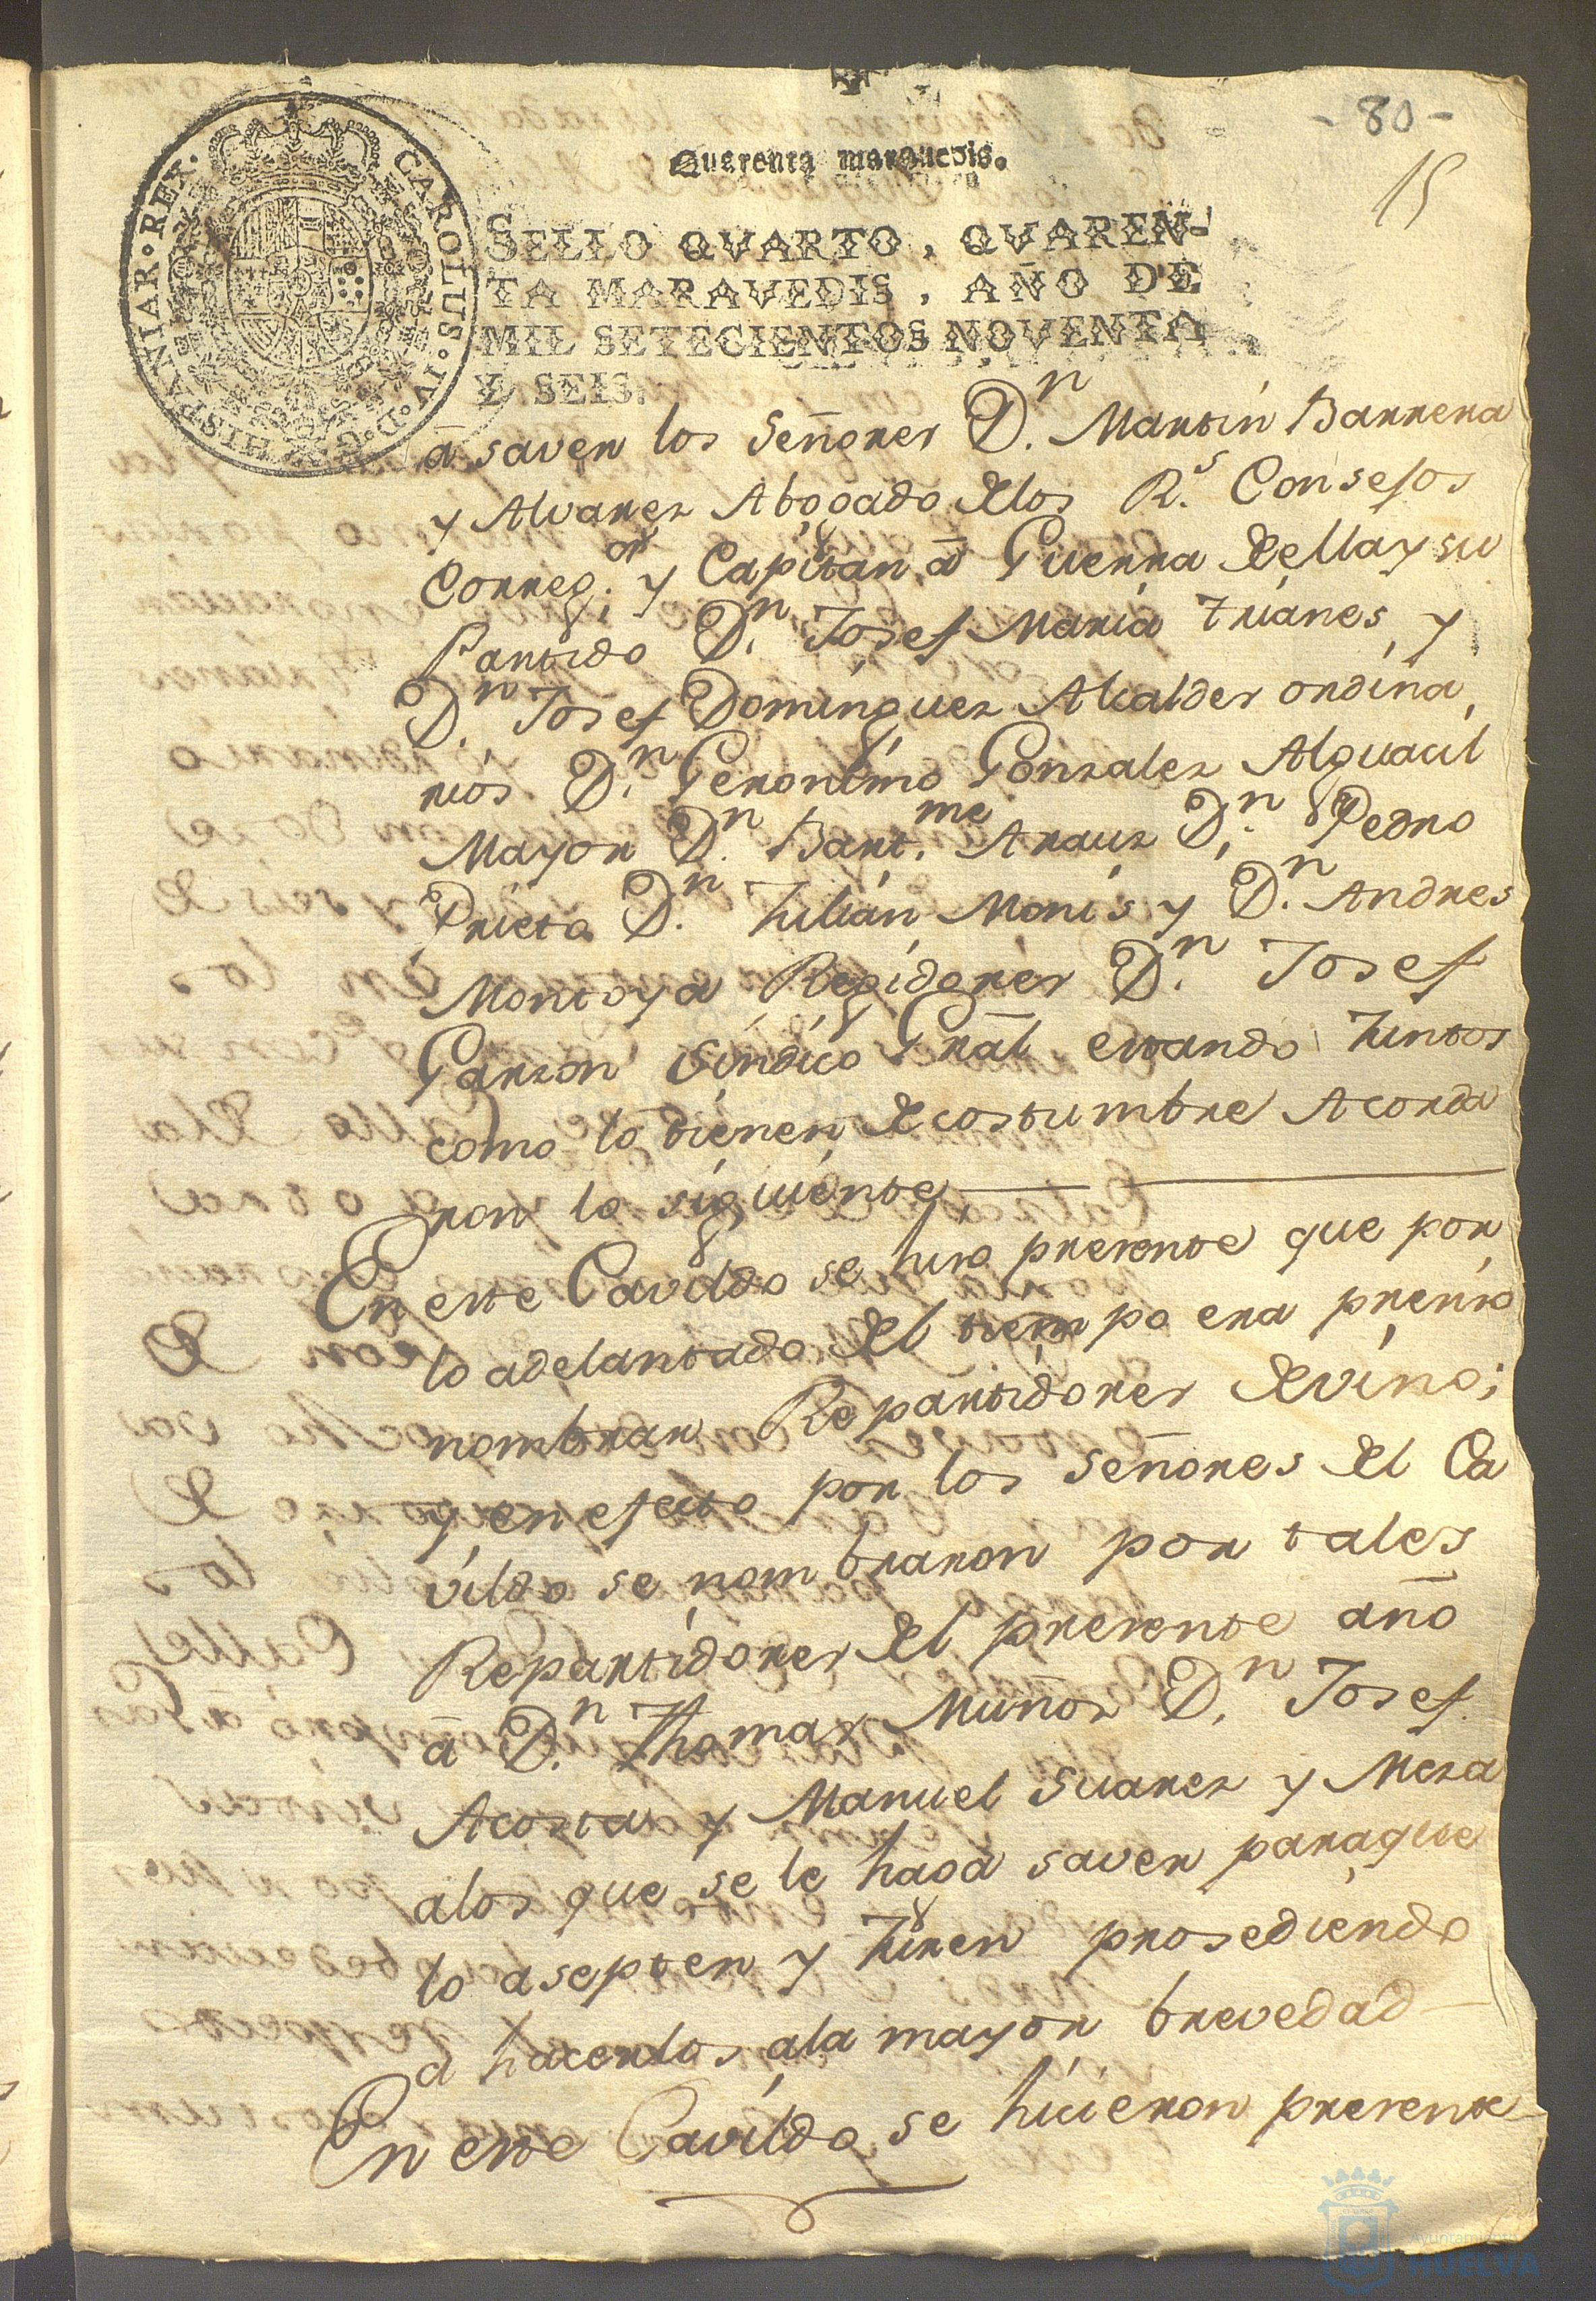 - 80 -
15
Quarenta marauedis.
CAROLUS · IV · D · G · HISPANIAR · REX ·
SELLO QVARTO, QVAREN-
TA MARAVEDIS, AÑO DE
MIL SETECIENTOS NOVENTA
Y SEIS.
â saver los Señores Dn. Martin Barrera
y Alvarez Abogado delos Rs. Consejos
Correg.or y Capitan â Guerra dellay su
Partido Dn. Josef Maria Trianes, y
Dn. Josef Dominguez Alcaldes ordina,
rios Dn. Geronimo Gonzalez Alguacil
Mayor Dn. Bart.me Arauz Dn. Pedro
Prieto Dn. Julian Monis y Dn. Andres
Montoya Regidores Dn. Josef
Garzon Sindico Grâl estando Juntos
como lo tienen de costumbre Acorda
ron lo siguiente
En este Cavildo se hizo presente que por
lo adelantado del tiempo era presiso
nombrar Repartidores devino;
y en efecto por los Señores del Ca
vildo se nombraron por tales
Repartidores del presente año
â Dn. Thomas Muñoz Dn. Josef
Acosta y Manuel Suarez y Meza
alos que se le haga saver paraque
lo asepten y Juren prosediendo
a hacerlos ala mayor brevedad
En este Cavildo se hicieron presente
Ayuntamiento
HUELVA